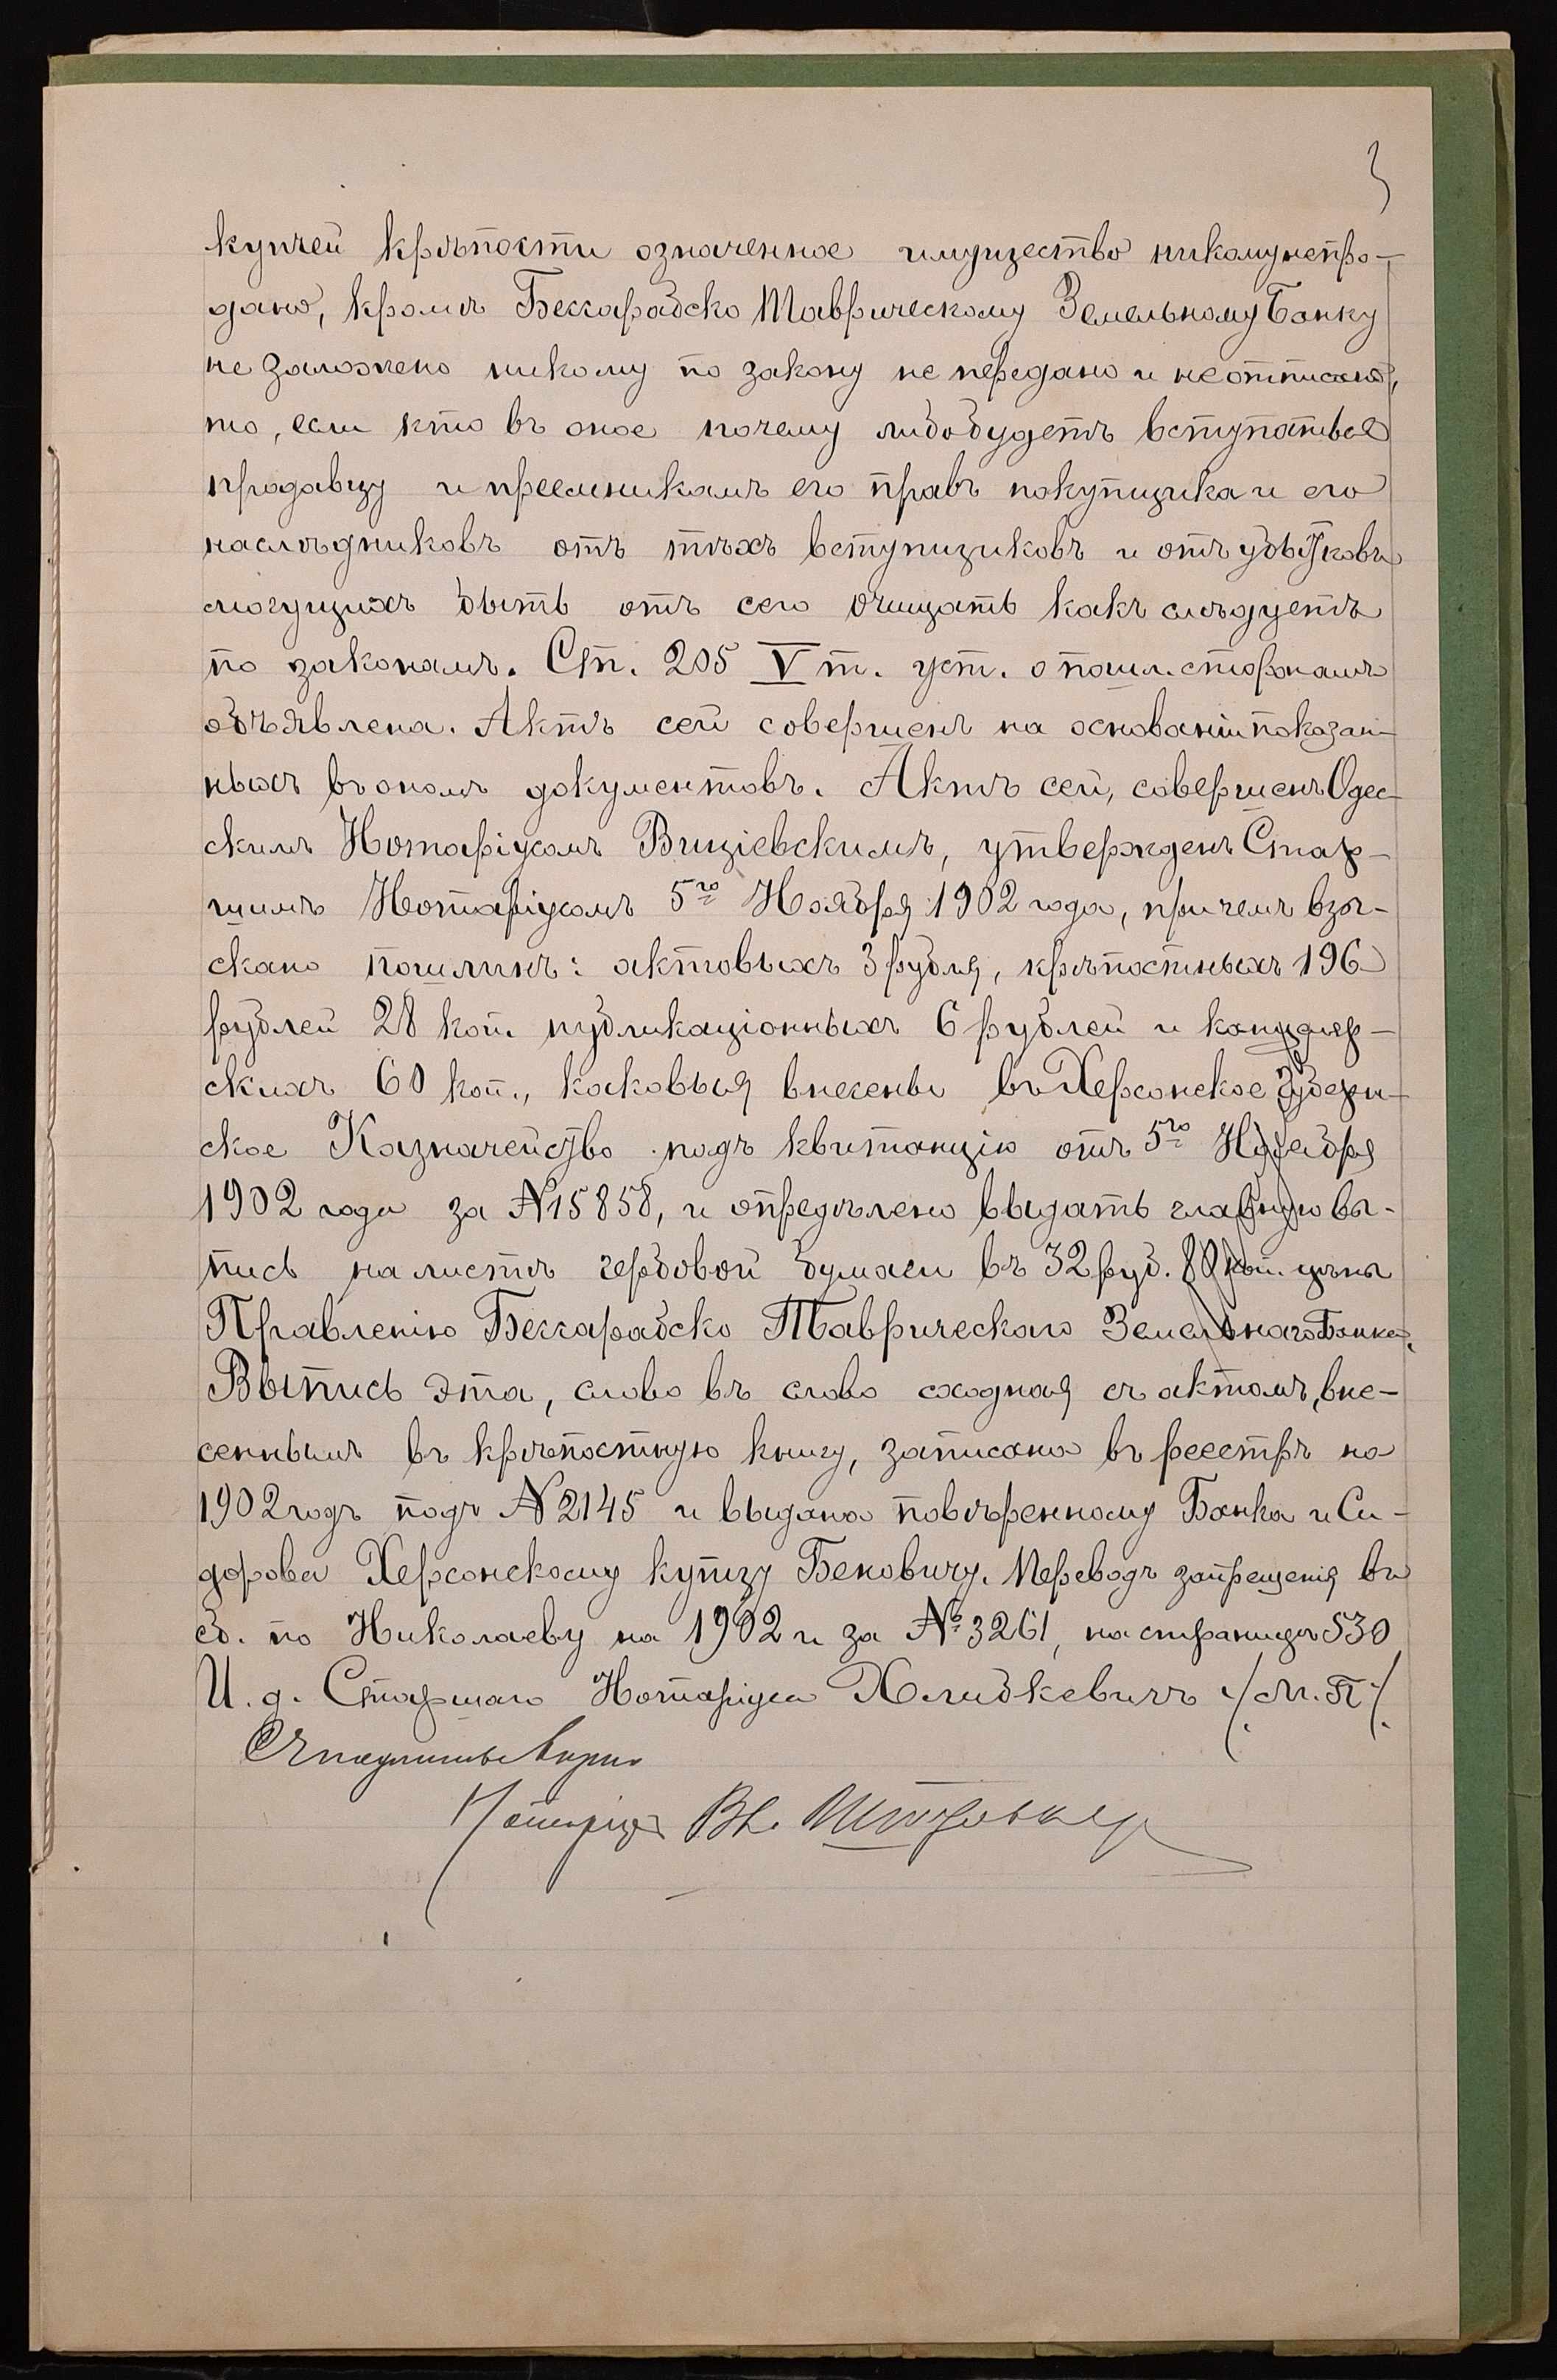 3
купчей крѣпости означенное имущество никому непро-
дано, кромѣ Бессарабско Таврическому Земельному Банку
не заложено никому по закону не передано и неотписано,
то, если кто въ оное почему либо будетъ вступаться
продавцу и преемникамъ его правъ покупщика и его
наслѣдниковъ отъ тѣхъ вступщиковъ и отъ убытковъ
могущихъ быть отъ сего очищать какъ слѣдуетъ
по законамъ. Ст. 205 V т. уст. о пошл. сторонамъ
объявлена. Актъ сей совершенъ на основаніи показан-
ныхъ въ ономъ документовъ. Актъ сей, совершенъ Одес-
скимъ Нотаріусомъ, утвержденъ Стар-
шимъ Нотаріусомъ 5го Ноября 1902 года, при чемъ взы-
скано пошлинъ: актовыхъ 3 рубля, крѣпостныхъ 196
рублей 28 коп. публикаціонныхъ 6 рублей и канцеляр-
скихъ 60 коп., каковыя внесены въ Херсонское Губерн-
ское Казначейство подъ квитанцію отъ 5го Ноября
1902 года за №15858, и опредѣлено выдать главную вы-
пись на листѣ гербовой бумаги въ 32 руб. 80 коп. цѣны
Правленію Бессарабско Таврическаго Земельнаго Банка.
Выпись эта, слово въ слово сходная съ актомъ, вне-
сеннымъ въ крѣпостную книгу, записана въ реестръ на
1902 годъ подъ №2145 и выдана повѣренному Банка и Си-
дорова Херсонскому купцу Беновичу. Переводъ запрещенія въ
сб. по Николаеву на 1902 г. за №3261, на страницѣ 530
И. д. Старшаго Нотаріуса Хлибкевичъ /М. П./
Съ подлиннымъ вѣрно
Нотаріусъ Вл.